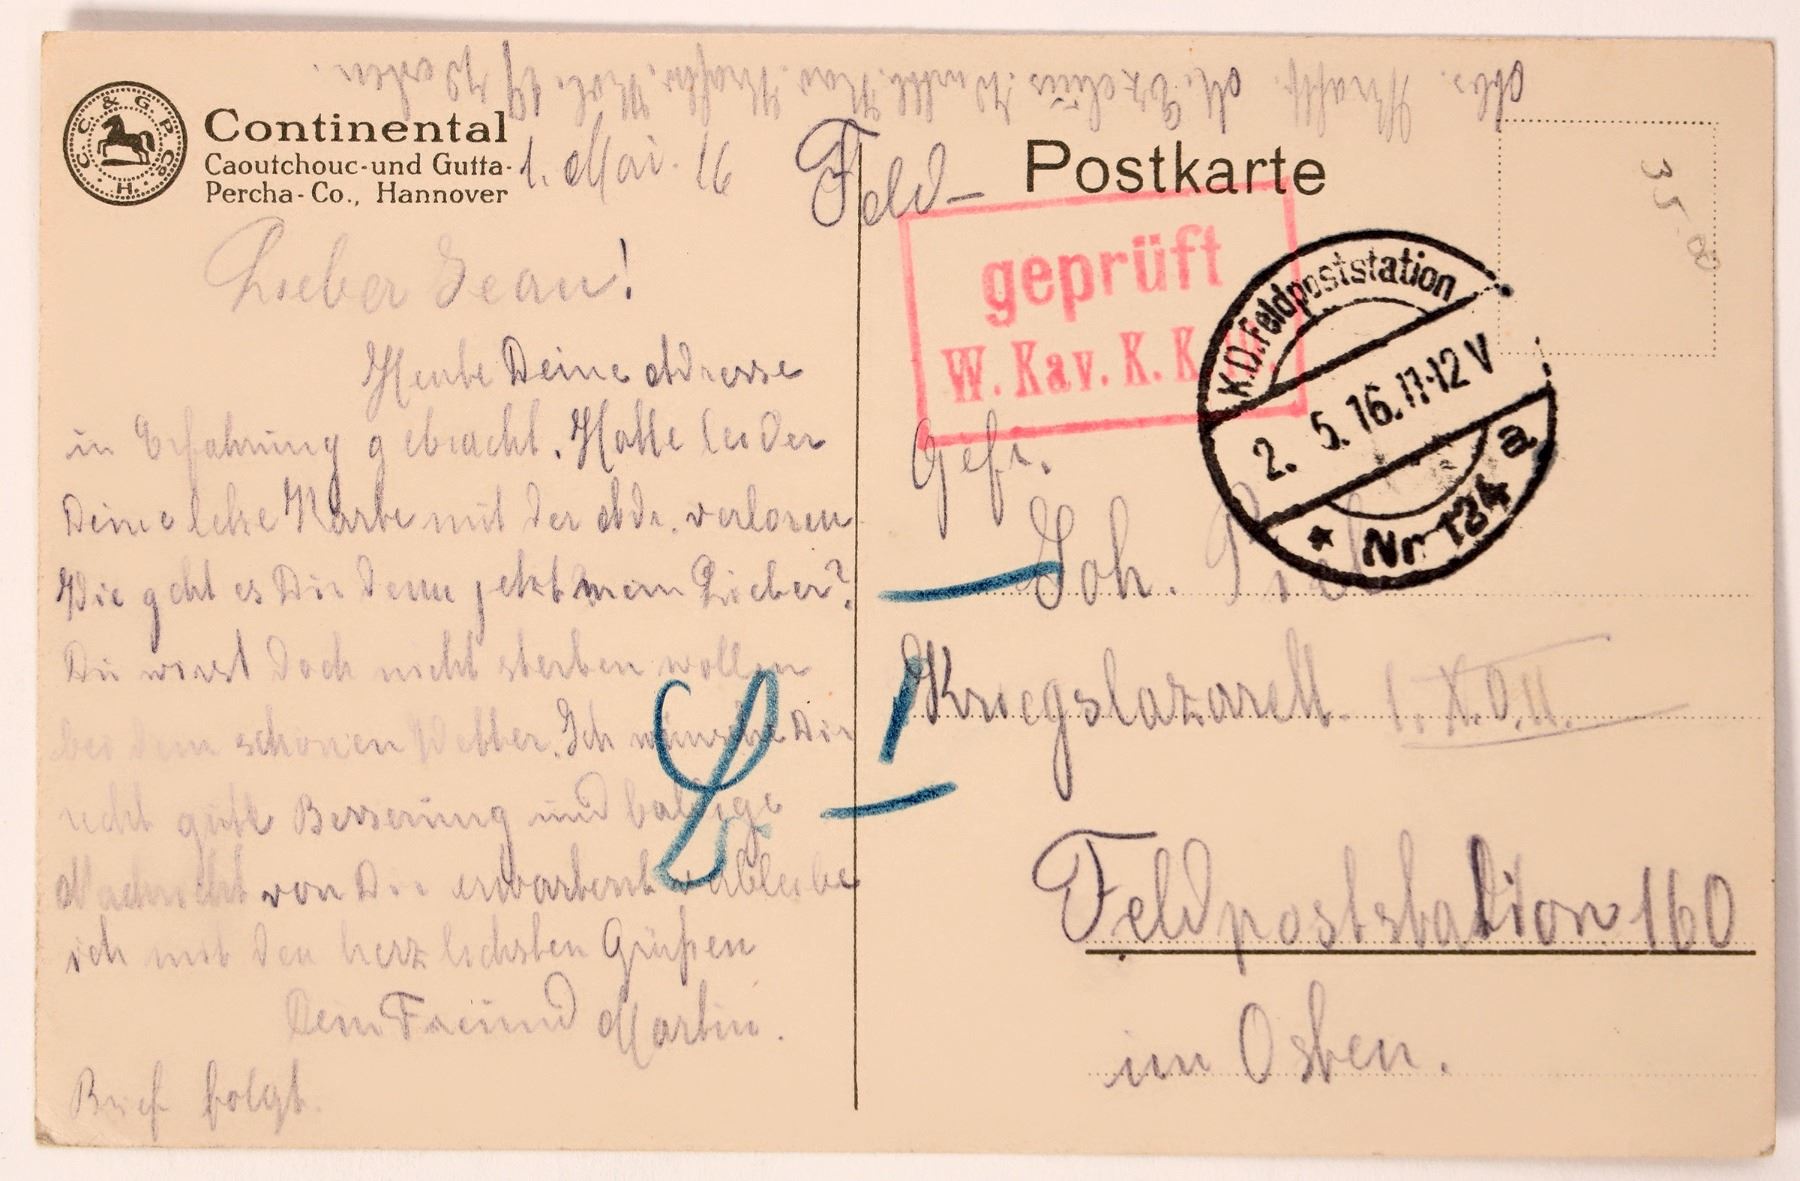 Abs. Kraftf. M. Württ. Kav. Kraftw. Kol.
C. C. & G. P. Co. H.
Continental
Caoutchouc-und Gutta-
Percha-Co., Hannover
1. Mai. 16
Feld-
Postkarte
35-00
geprüft
W. Kav. K. K.
K.D. Feldpoststation
2. 5. 16. 11-12 V
a
* Nr 184
Lieber Jean!
Heute Deine Adresse
in Erfahrung gebracht. Hatte leider
Deine letze Karte mit der Adr. verloren
Wie geht es Dir denn jetzt mein Lieber?
Du wirst doch nicht sterben wollen
bei dem schönen Wetter. Ich wünsche Dir
recht gute Besserung und baldige
Nachricht von Dir erwartent verbleibe
ich mit den herzlichsten Grüßen
Dein Freund Martin.
Brief folgt.
Gefr.
Joh.
Kriegslazarett 1. X.O.U.
Feldpoststation 160
im Osten.